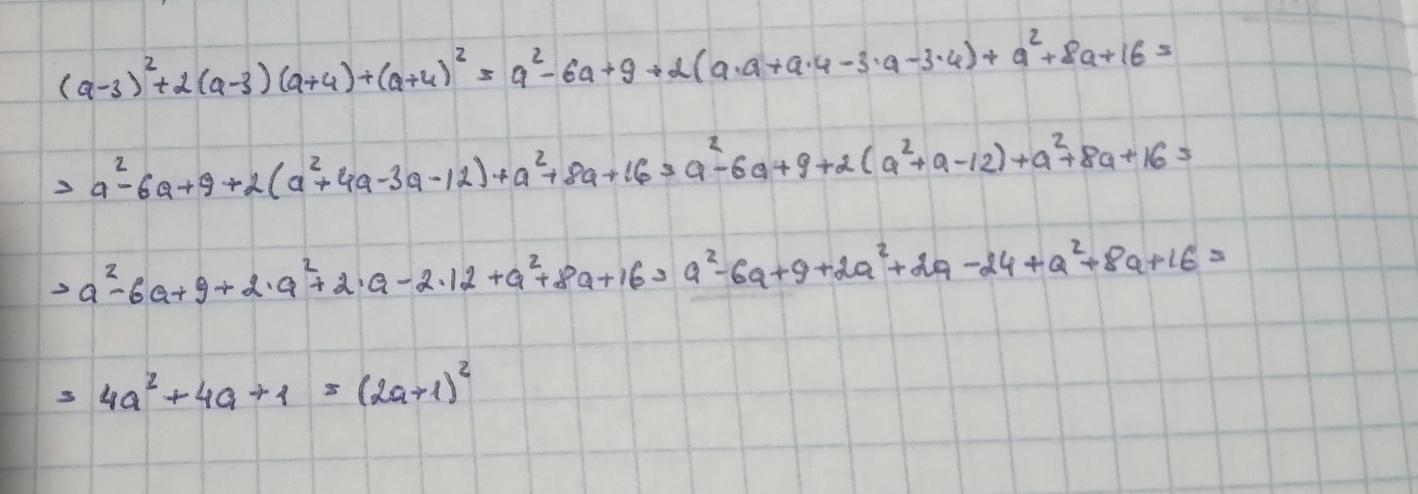 (a-3)²+2(a-3)(a+4)+(a+4)² = a²-6a+9+2(a·a+a·4-3·a-3·4)+a²+8a+16=
=a²-6a+9+2(a²+4a-3a-12)+a²+8a+16=a²-6a+9+2(a²+a-12)+a²+8a+16=
=a²-6a+9+2·a²+2·a-2·12+a²+8a+16=a²-6a+9+2a²+2a-24+a²+8a+16=
= 4a²+4a+1 = (2a+1)²